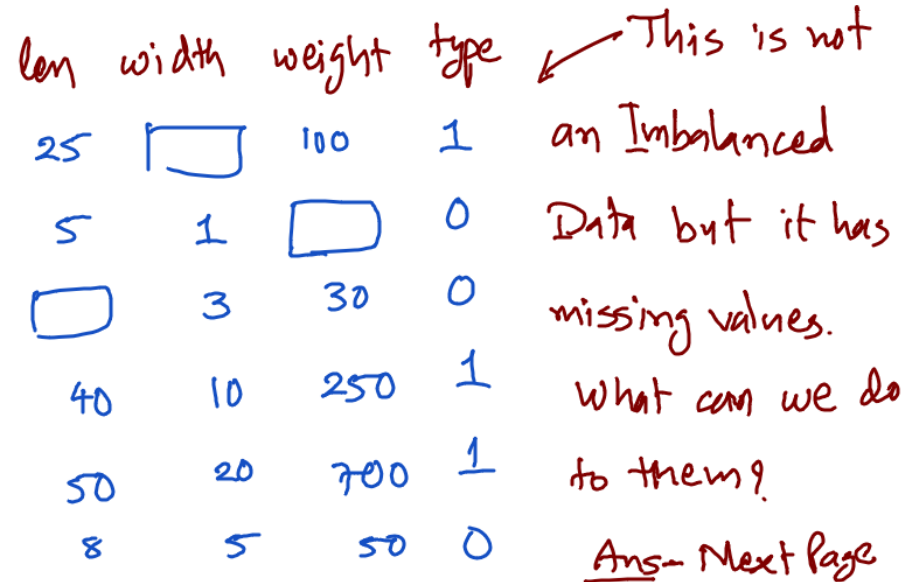 len width weight type
25 100 1
5 1 0
3 30 0
40 10 250 1
50 20 700 1
8 5 50 0
This is not
an Imbalanced
Data but it has
missing values.
What can we do
to them?
Ans- Next Page